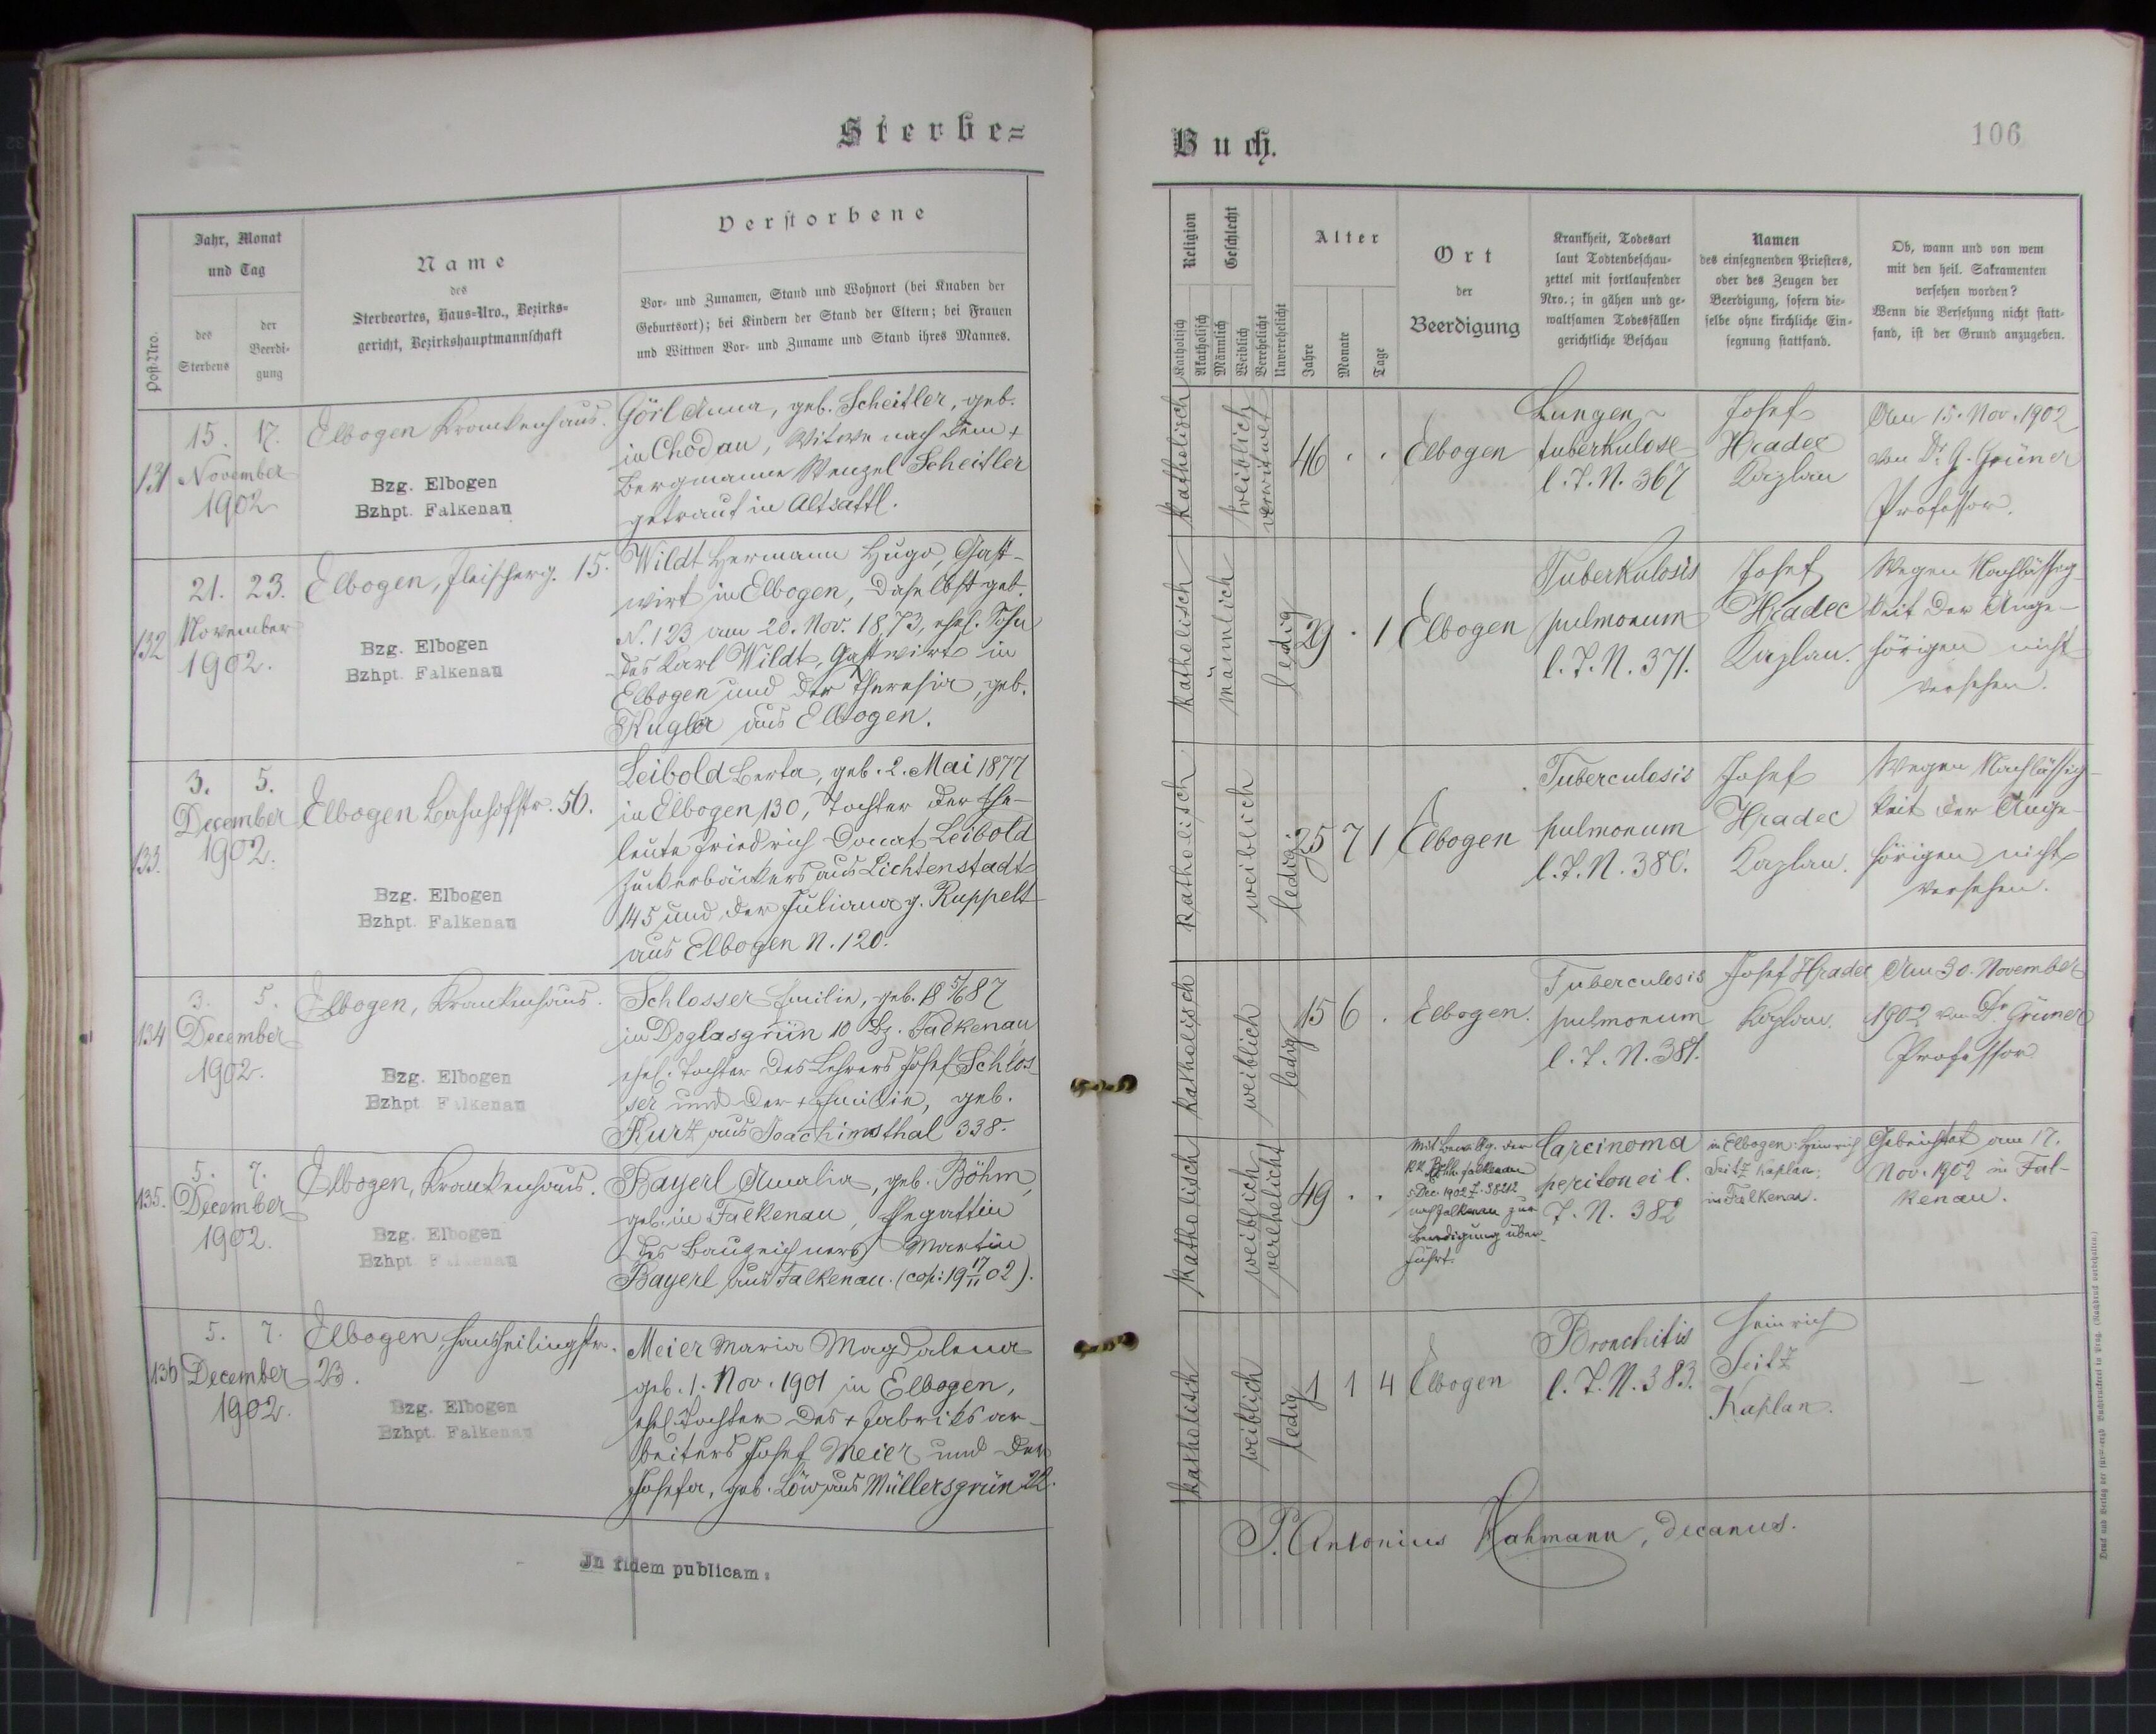 Sterbe=
Jahr, Monat
und Tag
Post-Nro.
des
Sterbens
der
Beerdi-
gung
Name
des
Sterbeortes, Haus-Nro., Bezirks-
gericht, Bezirkshauptmannschaft
Verstorbene
Vor- und Zunamen, Stand und Wohnort (bei Knaben der
Geburtsort); bei Kindern der Stand der Eltern; bei Frauen
und Wittwen Vor- und Zuname und Stand ihres Mannes.
131
15. 17.
November
1902
Elbogen Krankenhaus.
Bzg. Elbogen
Bzhpt. Falkenau
Görl Anna, geb. Scheitler, geb.
in Chodau, Witwe nach dem +
Bergmanne Wenzel Scheitler
getraut in Altsattl.
132
21. 23.
November
1902.
Elbogen, Fleischerg. 15.
Bzg. Elbogen
Bzhpt. Falkenau
Wildt Hermann Hugo, Gast-
wirt in Elbogen, daselbst geb.
N. 123 am 20. Nov. 1873, ehel. Sohn
des Karl Wildt, Gastwirts in
Elbogen und der Theresia, geb.
Kugler aus Elbogen.
133.
3. 5.
December
1902.
Elbogen Bahnhofstr. 56.
Bzg. Elbogen
Bzhpt. Falkenau
Leibold Berta, geb. 2. Mai 1877
in Elbogen 130, Tochter der Ehe-
leute Friedrich Donat Leibold
Zuckerbäckers aus Lichtenstadt
145 und der Juliana g. Ruppelt
aus Elbogen N. 120.
134
3. 5.
December
1902.
Elbogen, Krankenhaus.
Bzg. Elbogen
Bzhpt Falkenau
Schlosser Emilie, geb. 18 5/6 87
in Doglasgrün 10 Bz. Falkenau,
ehel. Tochter des Lehrers Josef Schlos
ser und der + Emilie, geb.
Kurz aus Joachimsthal 338.
135.
5. 7.
December
1902.
Elbogen, Krankenhaus.
Bzg. Elbogen
Bzhpt Falkenau
Bayerl Amalia, geb. Böhm,
geb. in Falkenau, Ehegattin
des Bauzeichners Martin
Bayerl aus Falkenau. (cop: 19 17/11 02).
136
5. 7.
December
1902.
Elbogen, Hansheilingstr.
23.
Bzg. Elbogen
Bzhpt. Falkenau
Meier Maria Magdalena
geb. 1. Nov. 1901 in Elbogen,
ehel. Tochter des + Fabriksar-
beiters Josef Meier und der
Josefa, geb. Löw aus Müllersgrün 22.
In fidem publicam:
Buch.
106
Religion
Katholisch
Akatholisch
Geschlecht
Männlich
Weiblich
Verehelicht
Unverehelicht
Alter
Jahre
Monate
Tage
Ort
der
Beerdigung
Krankheit, Todesart
laut Todtenbeschau-
zettel mit fortlaufender
Nro.; in gähen und ge-
waltsamen Todesfällen
gerichtliche Beschau
Namen
des einsegnenden Priesters,
oder des Zeugen der
Beerdigung, sofern die-
selbe ohne kirchliche Ein-
segnung stattfand.
Ob, wann und von wem
mit den heil. Sakramenten
versehen worden?
Wenn die Versehung nicht statt-
fand, ist der Grund anzugeben.
Katholisch
weiblich
verwitwet
46 . .
Elbogen
Lungen-
tuberkulose
l. T. N. 367
Josef
Hradec
Kaplan
Am 15. Nov. 1902
von Dr. G. Grüner
Professor.
Katholisch
männlich
ledig
29 . 1
Elbogen
Tuberkulosis
pulmonum
l. T. N. 371.
Josef
Hradec
Kaplan.
Wegen Nachlässig-
keit der Ange-
hörigen nicht
versehen.
Katholisch
weiblich
ledig
25 7 1
Elbogen
Tuberculosis
pulmonum
l. T. N. 380.
Josef
Hradec
Kaplan.
Wegen Nachlässig-
keit der Ange-
hörigen nicht
versehen.
Katholisch
weiblich
ledig
15 6 .
Elbogen.
Tuberculosis
pulmonum
l. T. N. 381.
Josef Hradec
Kaplan.
Am 30. November
1902 von Dr Grüner
Professor
Katholisch
weiblich
verehelicht
49 . .
Mit Bewillig. der
5 Dec. 1902 Z. 38212
nach Falkenau zur
Beerdigung über-
führt.
Carcinoma
peritonei l.
T. N. 382
in Elbogen: Heinrich
Seitz Kaplan.
in Falkenau.
Gebeichtet am 17.
Nov. 1902 in Fal-
kenau.
Katholisch
weiblich
ledig
1 1 4
Elbogen
Bronchitis
l. T. N. 383.
Heinrich
Seitz
Kaplan.
—
P. Antonius Hahmann, decanus.